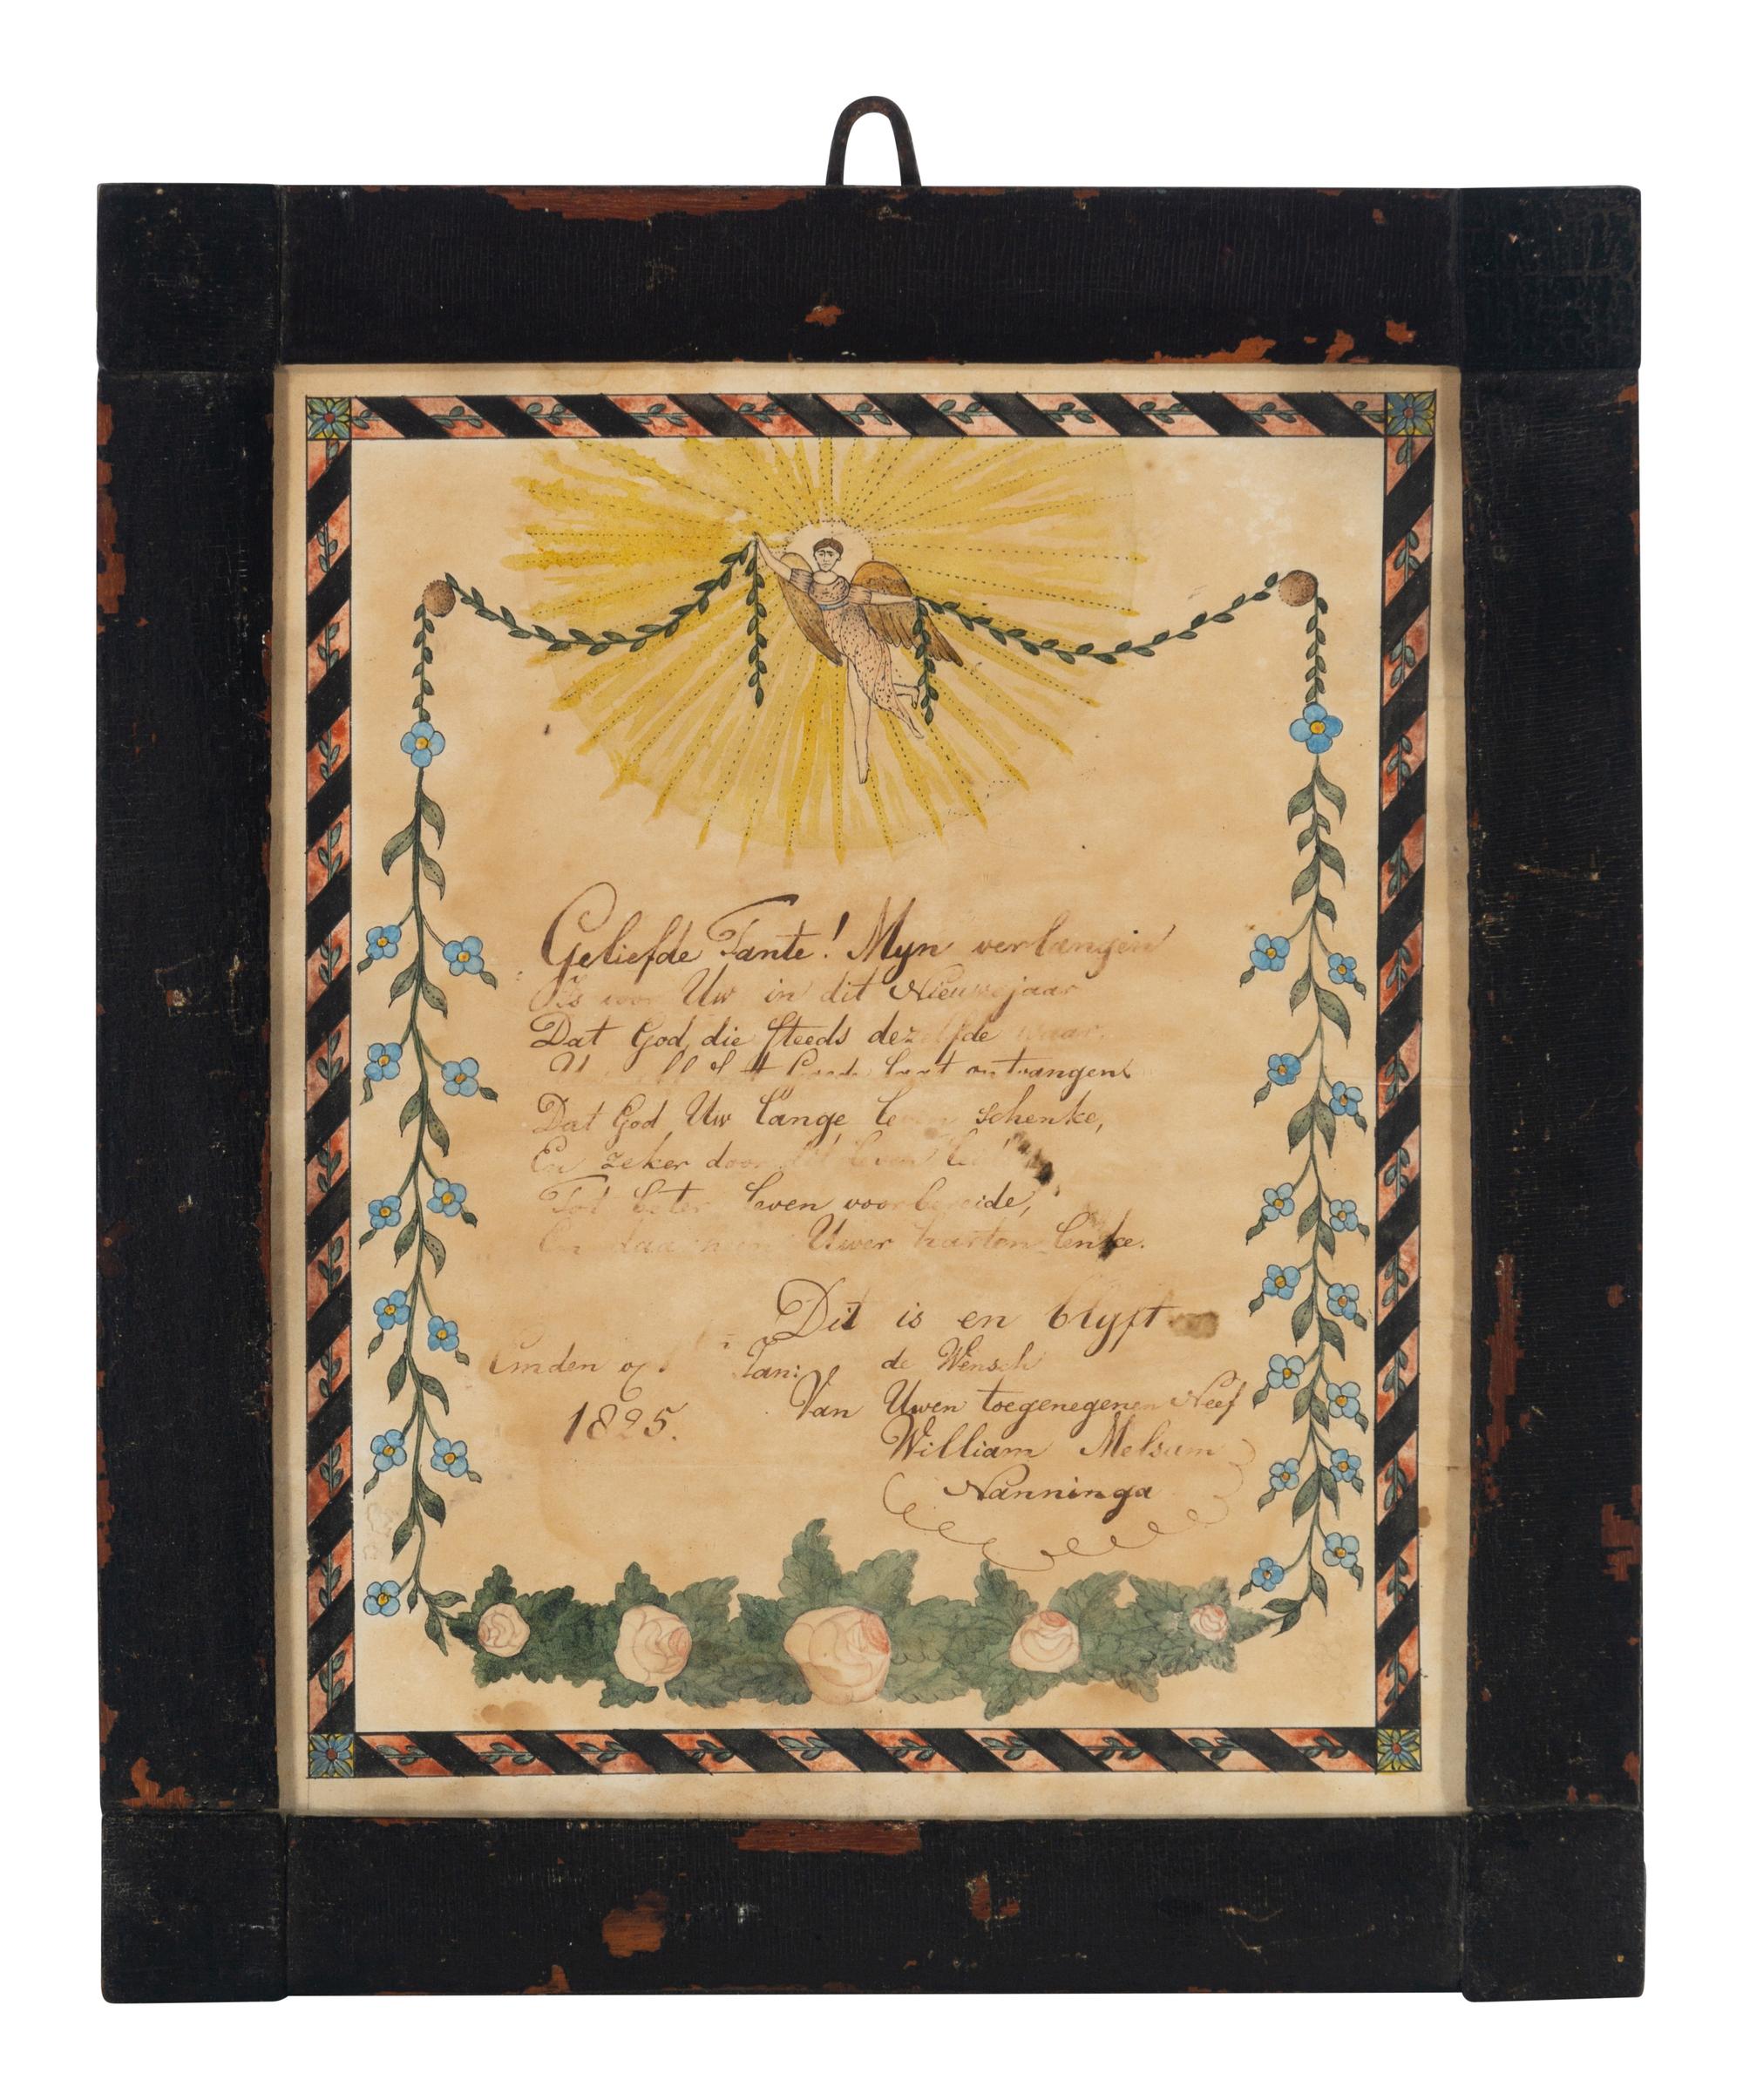 Geliefde Tante! Myn verlangen
Is voor Uw in dit Nieuwejaar
Dat God, die steeds dezelfde waar,
laat ontvangen
Dat God Uw lange leven schenke,
En zeker door dit leven
Tot beter leven voorbereide,
En Uwer harten lenke.
Dit is en blyft
Emden Jan: de Wensch
1825. Van Uwen toegenegenen Neef
William Melsum
Nanninga